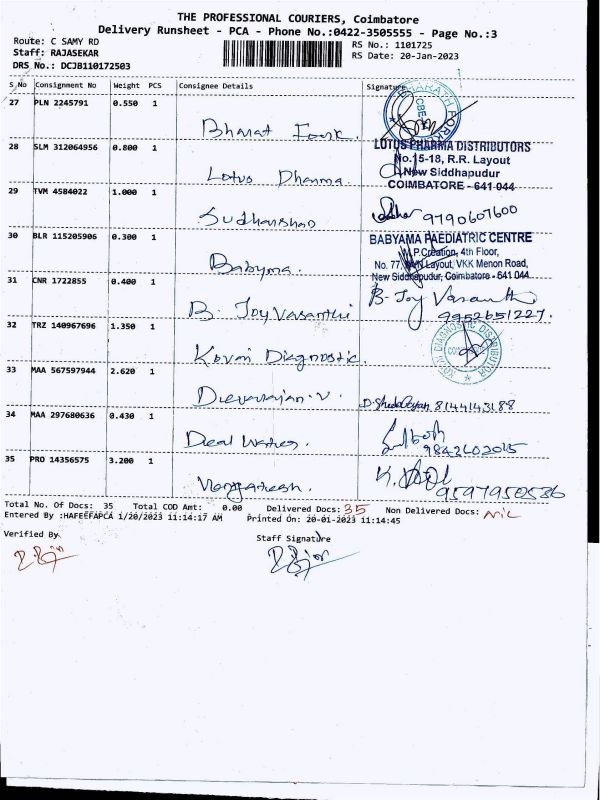 THE PROFESSIONAL COURIERS, Coimbatore
Delivery Runsheet - PCA - Phone No.:0422-3505555 - Page No.:3
Route: C SAMY RD
RS No.: 1101725
Staff: RAJASEKAR
RS Date: 20-Jan-2023
DRS No.: DCJB110172503
S.No Consignment No Weight PCS Consignee Details Signature
27 PLN 2245791 0.550 1
Bharat
28 SLM 312064956 0.800 1
LOTUS PHARMA DISTRIBUTORS
No.15-18, R.R. Layout
New Siddhapudur
COIMBATORE - 641 044
Lotus Pharma.
29 TVM 4584022 1.000 1
Sudharshan
9790607600
30 BLR 115205906 0.300 1
BABYAMA PAEDIATRIC CENTRE
M.P.Creation, 4th Floor,
No. 77, Layout, VKK Menon Road,
New Siddhapudur, Coimbatore - 641 044
Babyma.
31 CNR 1722855 0.400 1
B. Joy Vasanthi
B- Joy Vasanthi
9952651227.
32 TRZ 140967696 1.350 1
Kovai Diagnostic.
KOVAI DIAGNOSTIC DISTRIBUTOR
33 MAA 567597944 2.620 1
Devarajan.V.
8144143188
34 MAA 297680636 0.430 1
Deal
9842602015
35 PRO 14356575 3.200 1
9597950536
Total No. Of Docs: 35 Total COD Amt: 0.00 Delivered Docs: 35 Non Delivered Docs: NIL
Entered By :HAFEEFAPCA 1/20/2023 11:14:17 AM Printed On: 20-01-2023 11:14:45
Verified By
Staff Signature